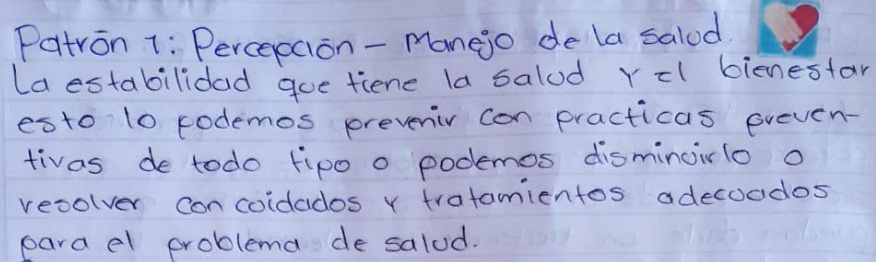 Patrón 1: Percepción - Manejo de la salud.
La estabilidad que tiene la salud y el bienestar
esto lo podemos prevenir con practicas preven-
tivas de todo tipo o podemos disminuirlo o
resolver con cuidados y tratamientos adecuados
para el problema de salud.